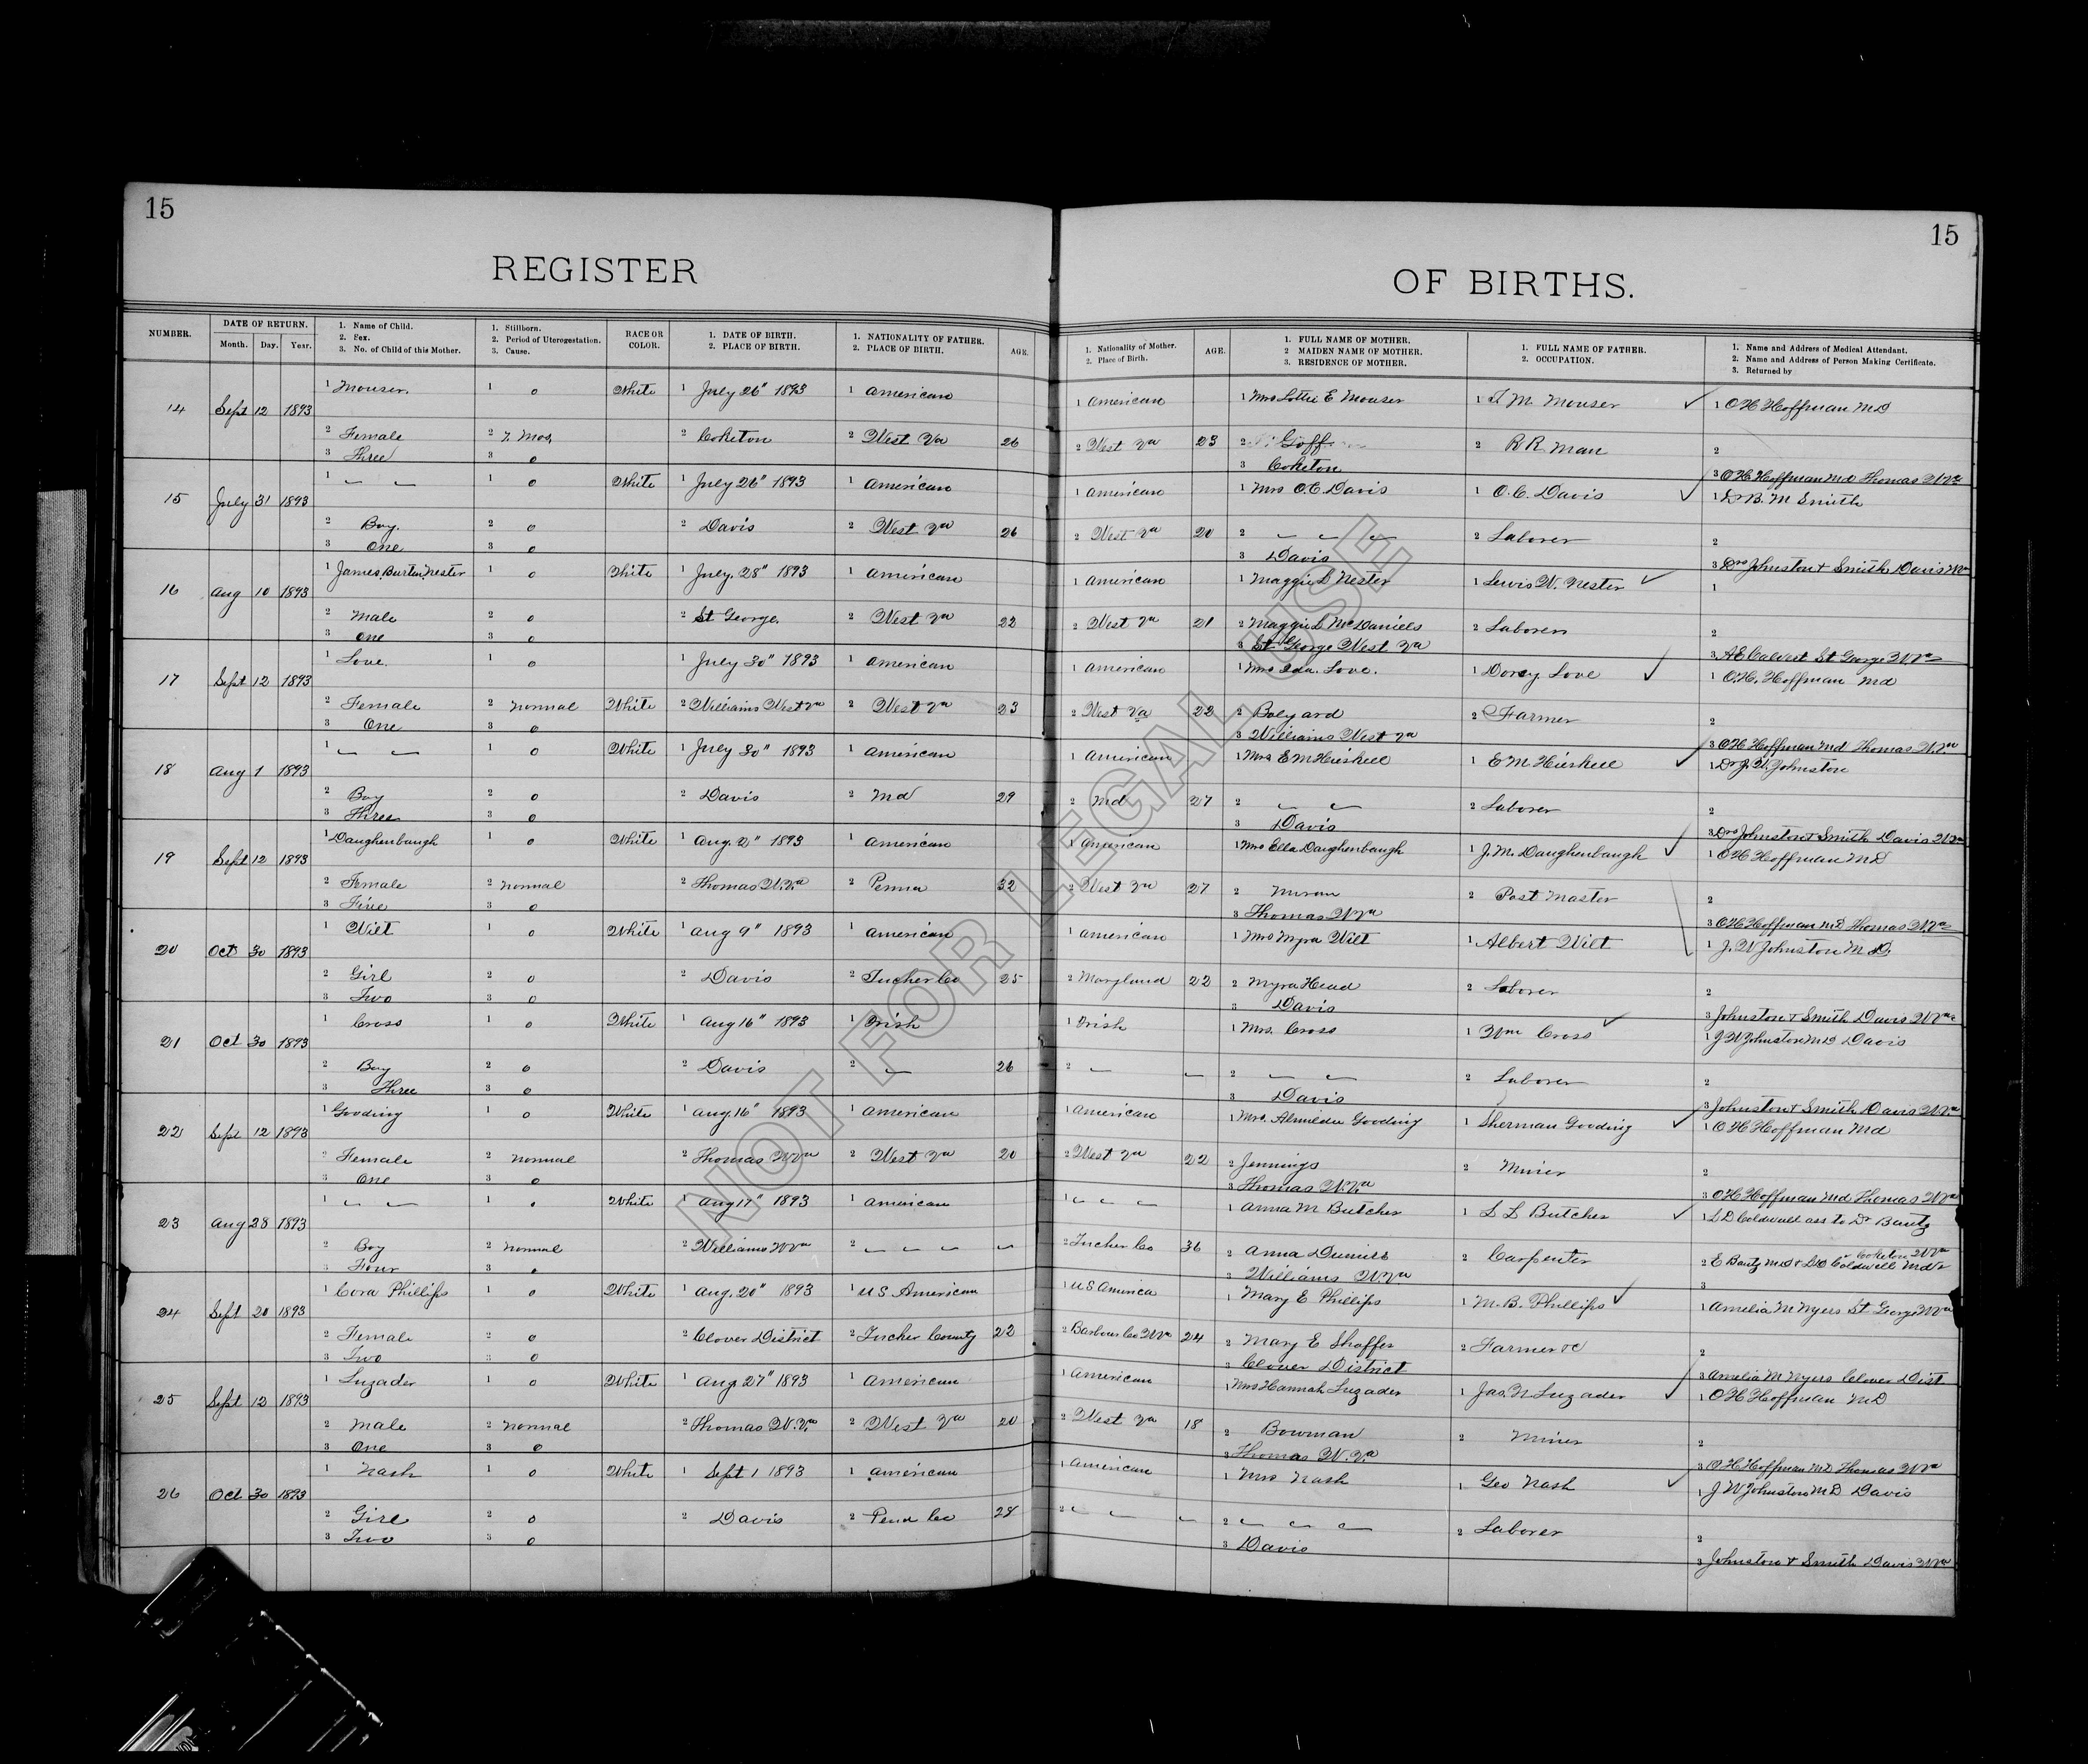 15
15
REGISTER
OF BIRTHS.
NUMBER.
DATE OF RETURN.
Month. Day. Year.
1. Name of Child.
2. Sex.
3. No. of Child of this Mother.
1. Stillborn.
2. Period of Uterogestation.
3. Cause.
RACE OR
COLOR.
1. DATE OF BIRTH.
2. PLACE OF BIRTH.
1. NATIONALITY OF FATHER.
2. PLACE OF BIRTH.
AGE.
1. Nationality of Mother.
2. Place of Birth.
AGE.
1. FULL NAME OF MOTHER.
2 MAIDEN NAME OF MOTHER.
3. RESIDENCE OF MOTHER.
1. FULL NAME OF FATHER.
2. OCCUPATION.
1. Name and Address of Medical Attendant.
2. Name and Address of Person Making Certificate.
3. Returned by
14 Sept 12 1893 1 Mouser. 1 0 White 1 July 26" 1893 1 American 1 American 1 Mrs Lottie E Mouser 1 M. Mouser 1 O H Hoffman MD
2 Female 2 7 Mos. 2 Coketon 2 West Va 26 2 West Va 23 2 Goff 2 R R Man 2
3 Three 3 0 3 Coketon 3 O H Hoffman Md Thomas W Va
15 July 31 1893 1 — — 1 0 White 1 July 26" 1893 1 American 1 American 1 Mrs O.C. Davis 1 O.C. Davis 1 Dr B. M Smith
2 Boy. 2 0 2 Davis 2 West Va 26 2 West Va 20 2 — — — 2 Laborer 2
3 One 3 0 3 Davis 3 Drs Johnston & Smith Davis W Va
16 Aug 10 1893 1 James Burton Nester 1 0 White 1 July. 28" 1893 1 American 1 American 1 Maggie L Nester 1 Lewis W. Nester 1
2 Male 2 0 2 St George. 2 West Va 22 2 West Va 21 2 Maggie L McDaniels 2 Laborer 2
3 One 3 0 3 St George West Va 3 A E Calvert St George W Va
17 Sept 12 1893 1 Love. 1 0 1 July 30" 1893 1 American 1 American 1 Mrs Ida. Love. 1 Dorcy Love 1 O.H. Hoffman Md
2 Female 2 Normal White 2 Williams West Va 2 West Va 23 2 West Va 22 2 Bolyard 2 Farmer 2
3 One 3 0 3 Williams West Va 3 O H Hoffman Md Thomas W. Va
18 Aug 1 1893 1 — — 1 0 White 1 July 30" 1893 1 American 1 American 1 Mrs E M Hieskell 1 E M Hieskell 1 Dr J. W. Johnston
2 Boy 2 0 2 Davis 2 Md 29 2 Md 27 2 — — 2 Laborer 2
3 Three 3 0 3 Davis 3 Drs Johnston & Smith Davis W Va
19 Sept 12 1893 1 Daughenbaugh 1 0 White 1 Aug. 2" 1893 1 American 1 American 1 Mrs Ella Daughenbaugh 1 J. M. Daughenbaugh 1 O H Hoffman M D
2 Female 2 Normal 2 Thomas W. Va 2 Penna 32 2 West Va 27 2 2 Post Master 2
3 Five 3 0 3 Thomas W Va 3 O H Hoffman M D Thomas W. Va
20 Oct 30 1893 1 Wilt 1 0 White 1 Aug 9" 1893 1 American 1 American 1 Mrs Myra Wilt 1 Albert Wilt 1 J. W Johnston M. D.
2 Girl 2 0 2 Davis 2 Tucker Co 25 2 Maryland 22 2 Myra Head 2 Laborer 2
3 Two 3 0 3 Davis 3 Johnston & Smith Davis W Va
21 Oct 30 1893 1 Cross 1 0 White 1 Aug 16" 1893 1 Irish 1 Irish 1 Mrs. Cross 1 Wm Cross 1 J W Johnston MD Davis
2 Boy 2 0 2 Davis 2 — 26 2 — — 2 — — 2 Laborer 2
3 Three 3 0 3 Davis 3 Johnston & Smith Davis W. Va
22 Sept 12 1893 1 Gooding 1 0 White 1 Aug. 16" 1893 1 American 1 American 1 Mrs. Almeda Gooding 1 Sherman Gooding 1 O H Hoffman Md
2 Female 2 Normal 2 Thomas W Va 2 West Va 20 2 West Va 22 2 Jennings 2 Miner 2
3 One 3 0 3 Thomas W. Va 3 O H Hoffman Md Thomas W Va
23 Aug 28 1893 1 — — 1 . White 1 Aug 17" 1893 1 American 1 — — — 1 Anna M Butcher 1 L L Butcher 1 L D Coldwell ass to Dr Bautz
2 Boy 2 Normal 2 Williams W Va 2 — — — — 2 Tucker Co 36 2 Anna 2 Carpenter 2 E Bautz M.D & L D Coldwell Md Coketon W Va
3 Four 3 . 3 Williams W. Va 3
24 Sept 20 1893 1 Cora Phillips 1 0 White 1 Aug. 20" 1893 1 U S American 1 U S America 1 Mary E Phillips 1 M. B. Phillips 1 Amelia M Myers St George W Va
2 Female 2 0 2 Clover District 2 Tucker County 22 2 Barbour Co W Va 24 2 Mary E Shaffer 2 Farmer &c 2
3 Two 3 0 3 Clover District 3 Amelia M Myers Clover Dist
25 Sept 12 1893 1 Luzader 1 0 White 1 Aug. 27" 1893 1 American 1 American 1 Mrs Hannah Luzader 1 Jas. N Luzader 1 O H Hoffman M D
2 Male 2 Normal 2 Thomas W. Va 2 West Va 20 2 West Va 18 2 Bowman 2 Miner 2
3 One 3 0 3 Thomas W. Va 3 O H Hoffman M D Thomas W Va
26 Oct 30 1893 1 Nash 1 0 White 1 Sept 1 1893 1 American 1 American 1 Mrs Nash 1 Geo Nash 1 J W Johnston M D Davis
2 Girl 2 0 2 Davis 2 Pen Co 28 2 — — — 2 — — — 2 Laborer 2
3 Two 3 0 3 Davis 3 Johnston & Smith Davis W Va
NOT FOR LEGAL USE